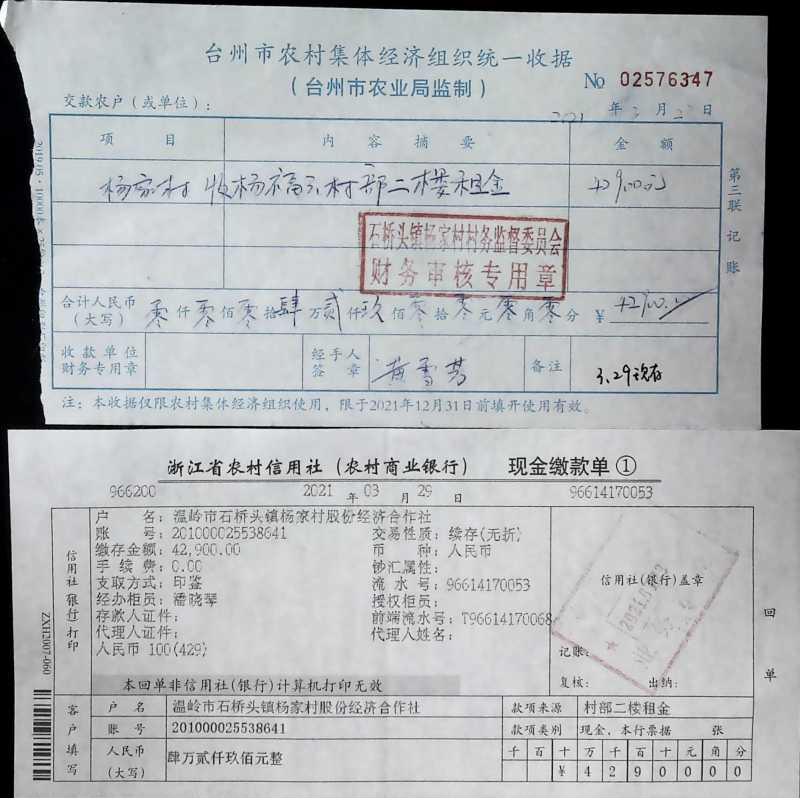 台州市农村集体经济组织统一收据
(台州市农业局监制)
No 02576347
交款农户(或单位):
2021 年 3 月 日
项 目 内 容 摘 要 金 额
杨家村 收杨福 村部二楼租金 42900元
石桥头镇杨家村村务监督委员会
财务审核专用章
第三联 记账
合计人民币(大写) 零仟零佰零拾肆万贰仟玖佰零拾零元零角零分 ¥ 42900.00
收款单位财务专用章 经手人签章 黄雪芳 备注 3.29现存
注:本收据仅限农村集体经济组织使用,限于2021年12月31日前填开使用有效。
浙江省农村信用社(农村商业银行) 现金缴款单①
966200 2021 年 03 月 29 日 96614170053
户 名:温岭市石桥头镇杨家村股份经济合作社
账 号:201000025538641 交易性质:续存(无折)
缴存金额:42,900.00 币 种:人民币
手 续 费:0.00 钞汇属性:
支取方式:印鉴 流 水 号:96614170053
经办柜员:潘晓琴 授权柜员:
存款人证件: 前端流水号:T96614170068
代理人证件: 代理人姓名:
人民币 100(429)
信用社(银行)打印
信用社(银行)盖章
记账:
复核: 出纳:
回单
本回单非信用社(银行)计算机打印无效
ZXH2007-060
客户填写
户 名 温岭市石桥头镇杨家村股份经济合作社 款项来源 村部二楼租金
账 号 201000025538641 款项类别 现金,本行票据 张
人民币(大写) 肆万贰仟玖佰元整 千 百 十 万 千 百 十 元 角 分
¥ 4 2 9 0 0 0 0